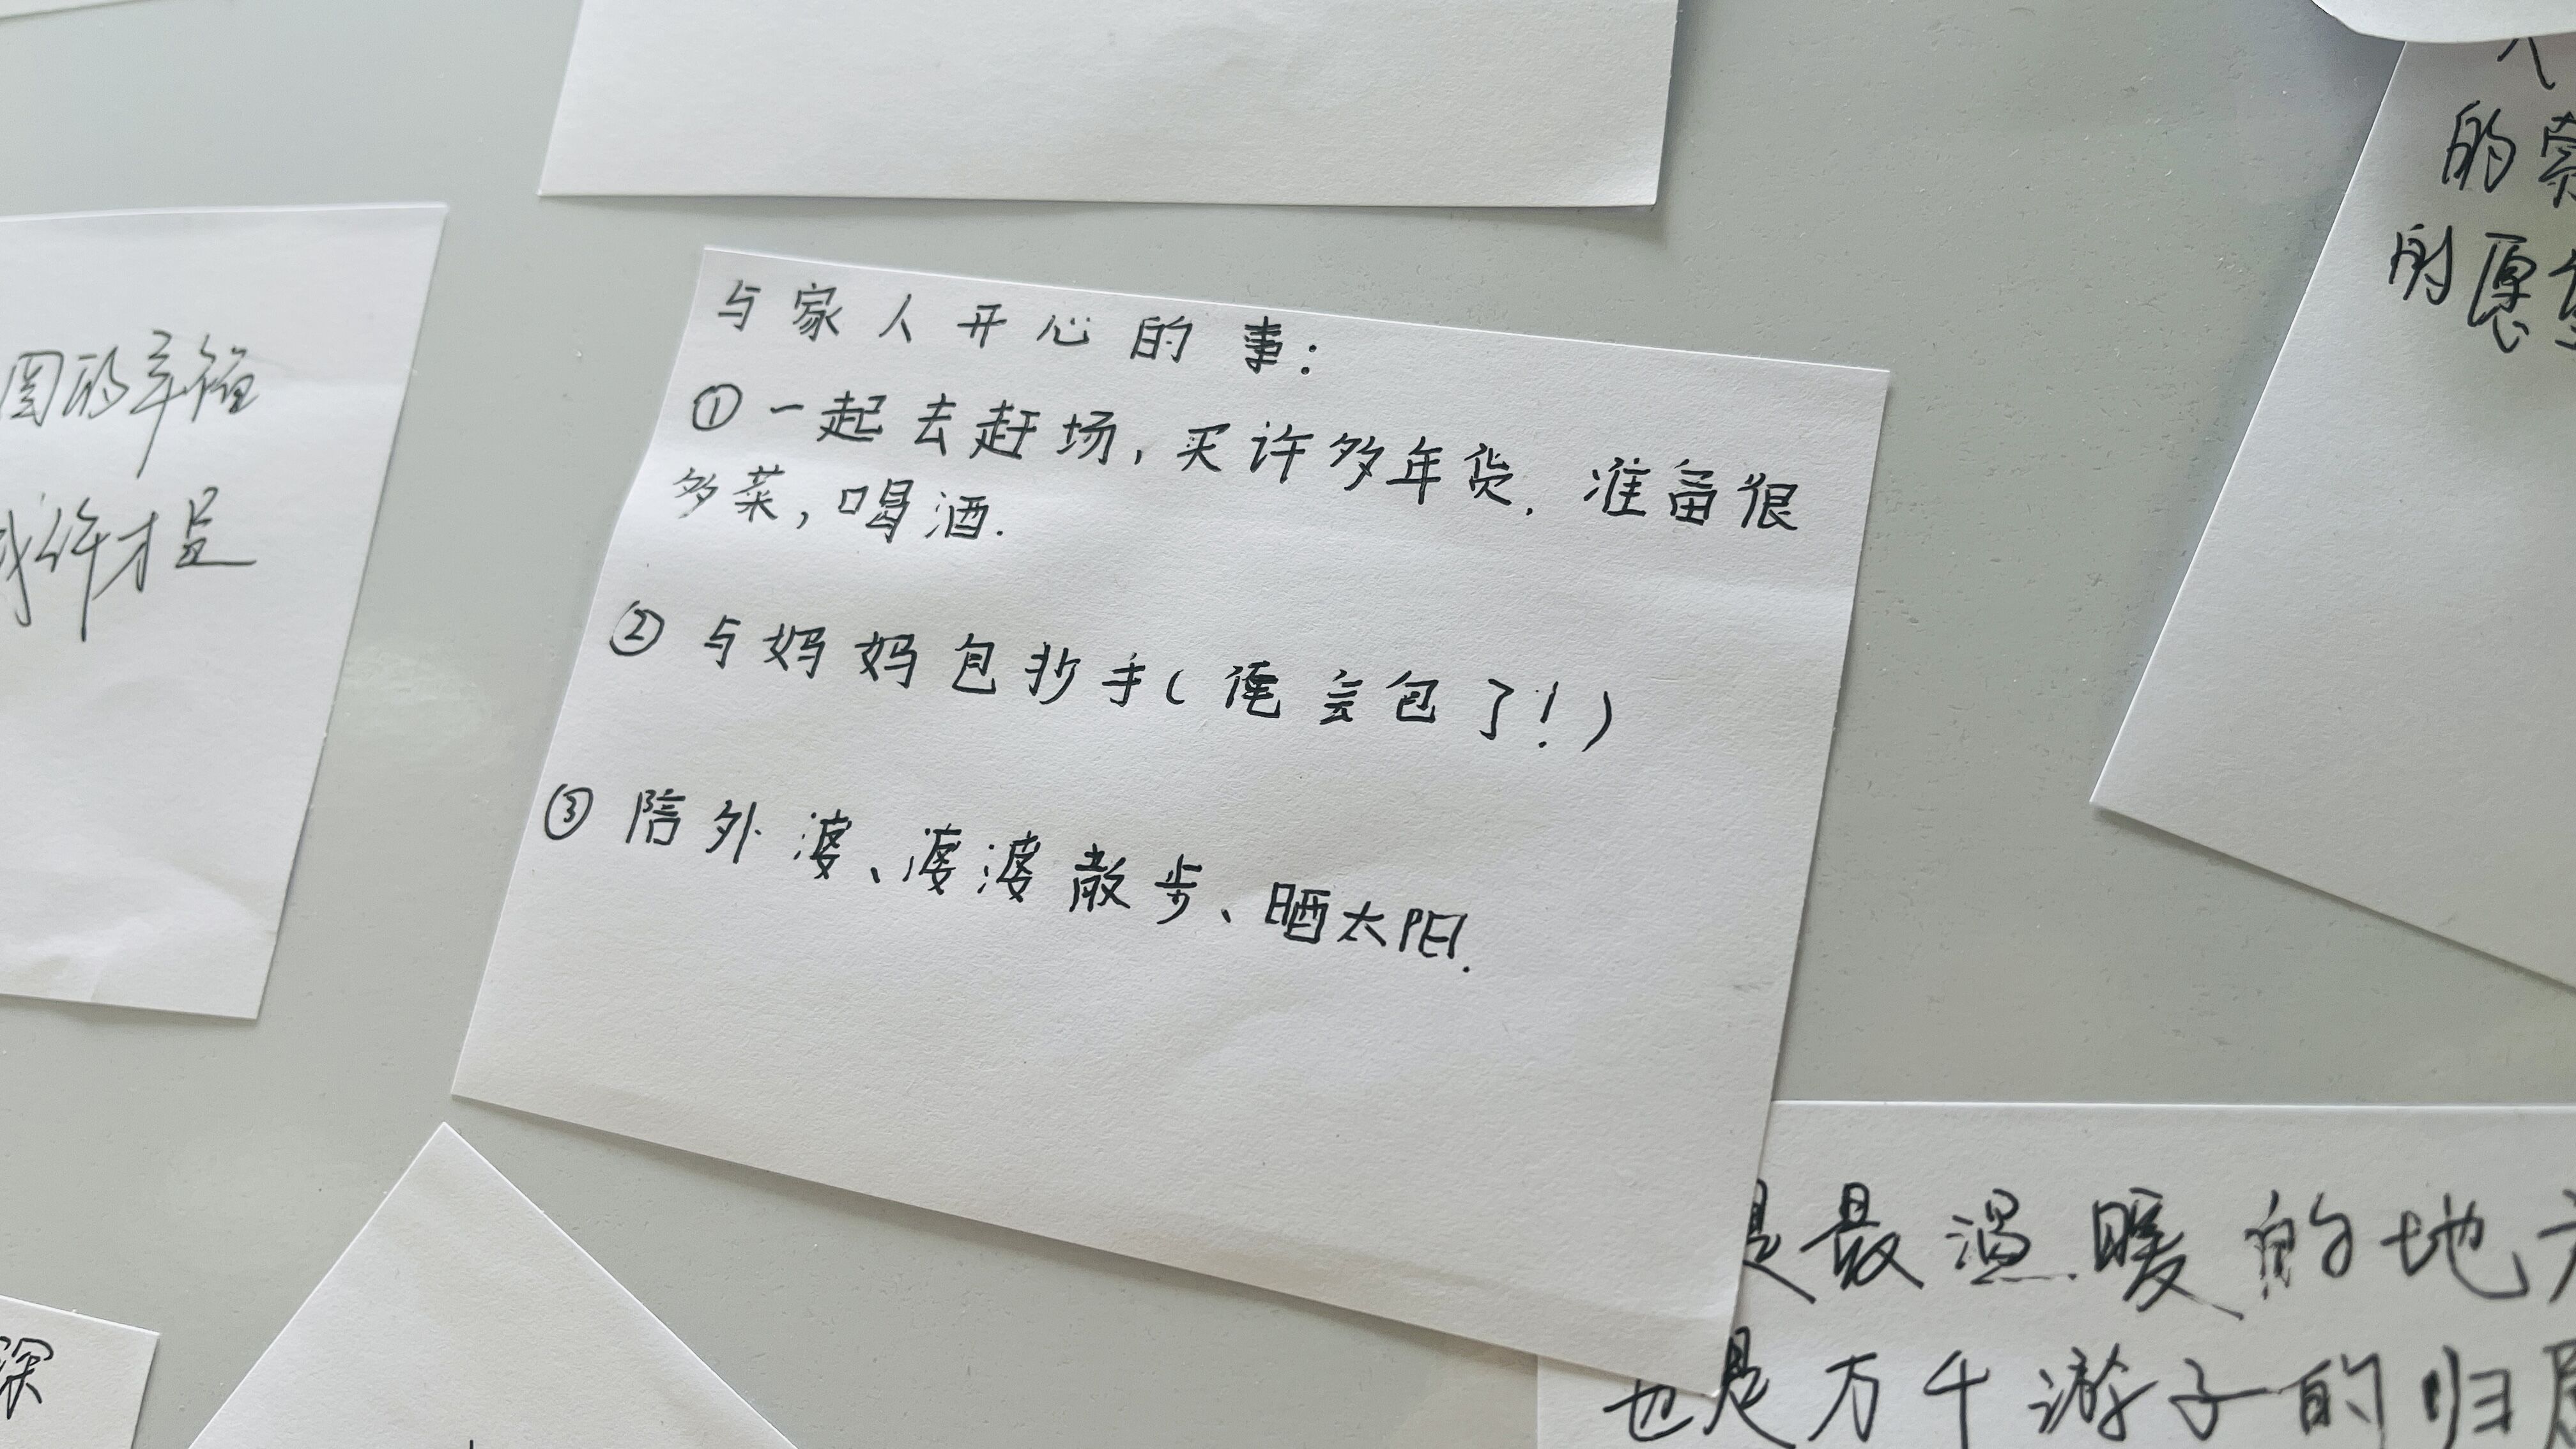 与家人开心的事：
①一起去赶场，买许多年货．准备很
多菜，喝酒．
②与妈妈包抄手（俺会包了！）
③陪外婆、婆婆散步、晒太阳．
的幸福
或许才是
的
的愿望
深
是最温暖的地方
也是万千游子的归